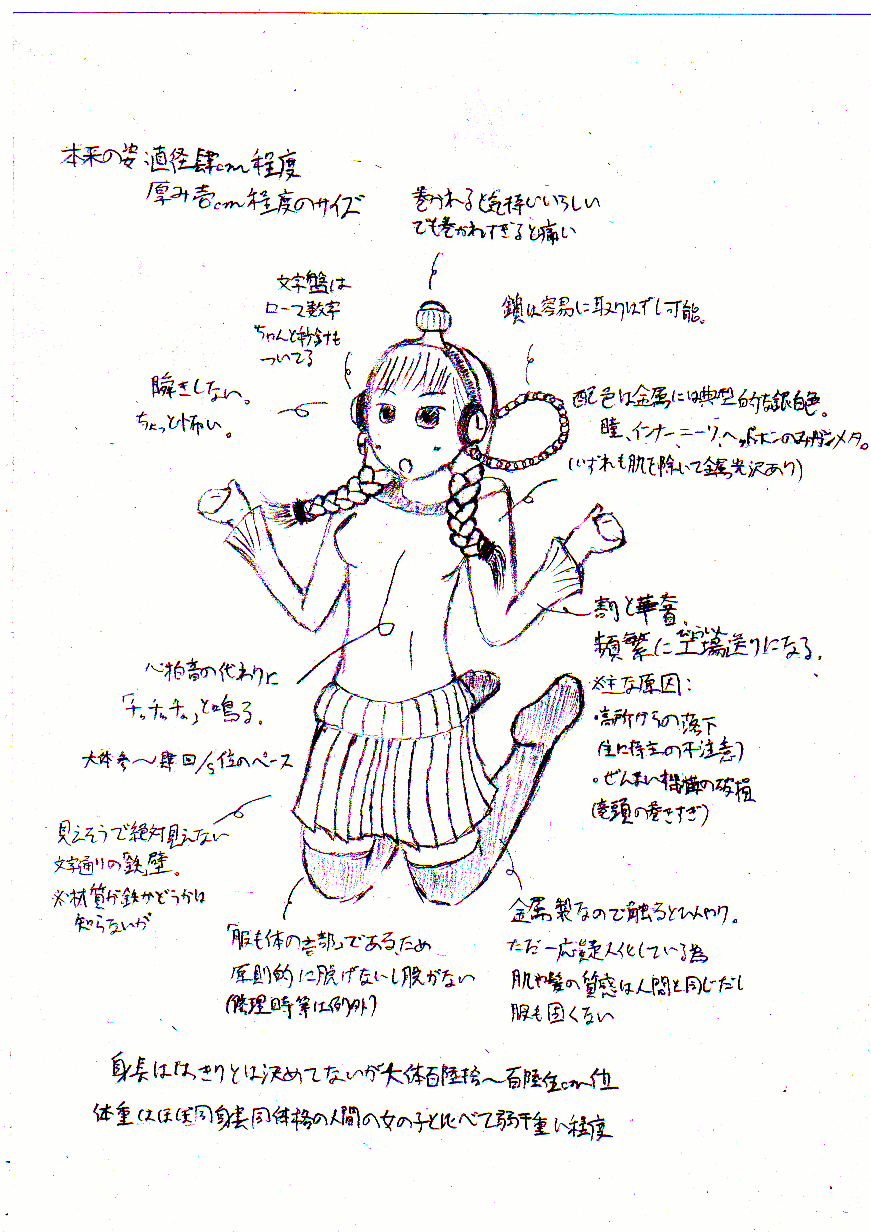 本来の姿 直径肆cm程度
厚み壱cm程度のサイズ
巻かれると気持いいらしい
でも巻かれすぎると痛い
文字盤は
ローマ数字
ちゃんと秒針も
ついてる
鎖は容易に取りはずし可能。
瞬きしない。
ちょっと怖い。
配色は金属には典型的な銀白色。
瞳、インナー、ニーソ、ヘッドホンのみガンメタ。
(いずれも肌を除いて金属光沢あり)
割と華奢。
頻繁に工場送りになる。
びょういん
※主な原因:
・高所からの落下
(主に持主の不注意)
・ぜんまい機構の破損
(竜頭の巻きすぎ)
心拍音の代わりに
「チッチッチッ」と鳴る。
大体参〜肆回/s位のペース
見えそうで絶対見えない
文字通りの「鉄」壁。
※材質が鉄かどうかは
知らないが
「服も体の壱部」であるため
原則的に脱げないし脱がない
(修理時等は例外)
金属製なので触るとひんやり。
ただ一応擬人化している為
肌や髪の質感は人間と同じだし
服も固くない
身長ははっきりとは決めてないが大体百陸拾〜百陸伍cm位
体重はほぼ同身長同体格の人間の女の子と比べて若干重い程度